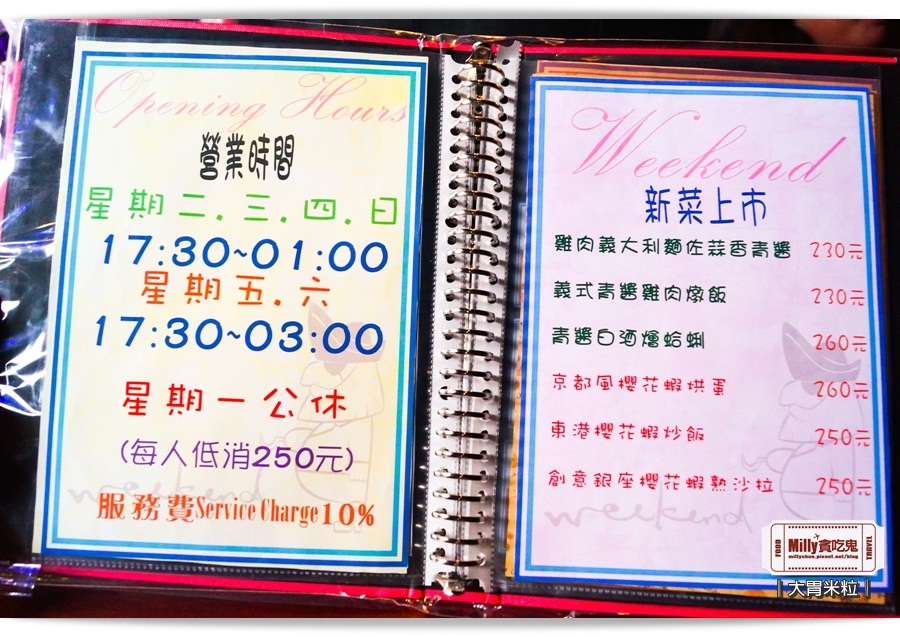 Opening Hours
營業時間
星期二.三.四.日
17:30~01:00
星期五.六
17:30~03:00
星期一公休
(每人低消250元)
服務費Service Charge10%
weekend
Weekend
新菜上市
雞肉義大利麵佐蒜香青醬 230元
義式青醬雞肉燉飯 230元
青醬白酒燴蛤蜊 260元
京都風櫻花蝦烘蛋 260元
東港櫻花蝦炒飯 250元
創意銀座櫻花蝦熱沙拉 250元
weekend
FOOD
Milly貪吃鬼
millychun.pixnet.net/blog
TRAVEL
|大胃米粒|